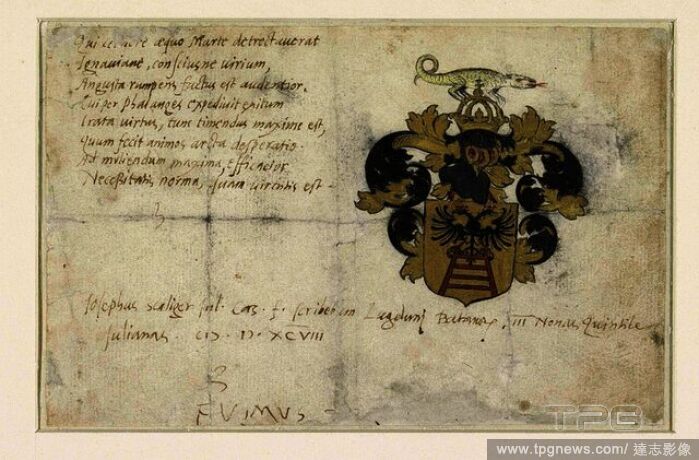 Qui aequo Marte detrectaverat
Ignaviane, consciusne virium,
Angusta rumpens factus est audentior.
Cui per Phalanges expedivit exitum
Irata virtus, tunc timendus maxime est,
Quum fecit animos arcta desperatio.
Ad muniendum maxima, efficacior
Necessitatis norma, quam virtutis est.
Josephus Scaliger Jul. Caes. f. scribebam Lugduni Batavor. III Nonas Quintile
Julianas. CIƆ. IƆ. XCVIII
FVIMVS
TPG
www.tpgnews.com/達志影像